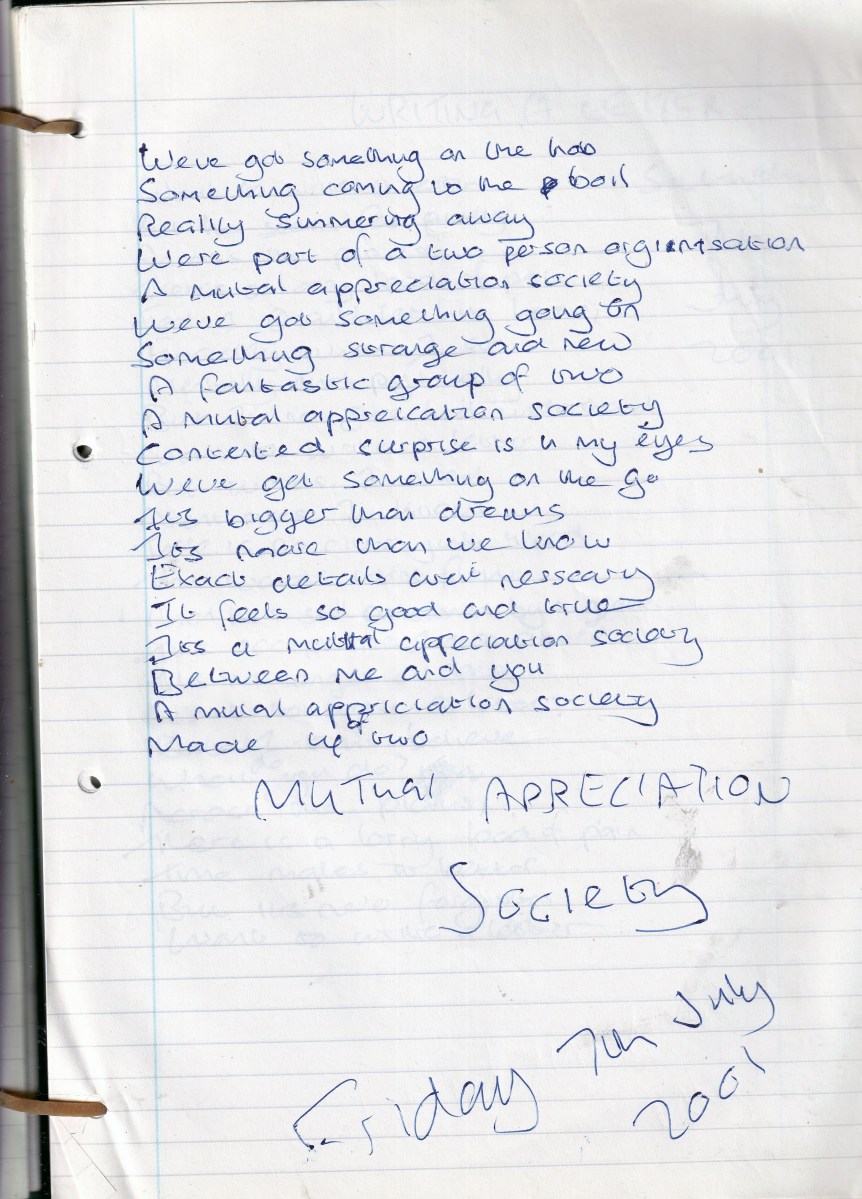 Weve got something on the hob
Something coming to the boil
Reality simmering away
Were part of a two person orginisation
A mutal appreciation society
Weve got something going on
Something strange and new
A fantastic group of two
A mutal appreication society
Contented surprise is in my eyes
Weve got something on the go
Its bigger than dreams
Its more than we know
Exact details arent nesscary
It feels so good and true
Its a mutual apreciation society
Between me and you
A mutal appriciation society
Made up of two
MUTUAL APRECIATION
SOCIETY
Friday 7th July
2001